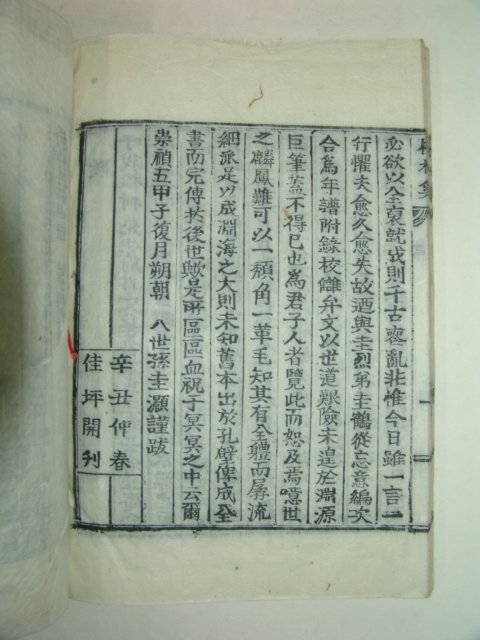 必欲以全裒就戎則千古喪亂非惟今日雖一言二
行懼夫愈久愈失故迺與圭烈弟圭鶴從忘意編次
合爲年譜附錄校讎弁文以世道艱險未遑於淵源
巨筆蓋不得已也爲君子人者覽此而恕及焉噫世
之麟鳳難可以一頬角一革毛知其有全體而孱流
細派足以成淵海之大則未知舊本出於孔壁俾成全
書而完傳於後世歟是所區區血祝于冥冥之中云爾
崇禎五甲子復月朔朝 八世孫圭灝謹跋
辛丑仲春
佳坪開刋